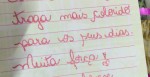 Traga mais colorido
para os seus dias.
Muita força!